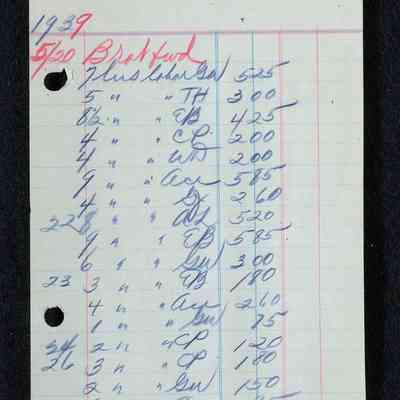 1939
5/20 Brot fwd
7 hrs labor GW 525
5 " " TH 300
8½ " " EB 425
4 " " CP 200
4 " " WD 200
9 " " 585
4 " " 260
22 8 " " 520
9 " " EB 585
6 " " GW 300
23 3 " " EB 180
4 " " 260
1 " " GW 75
24 2 " " CP 120
26 3 " " CP 180
2 " " GW 150